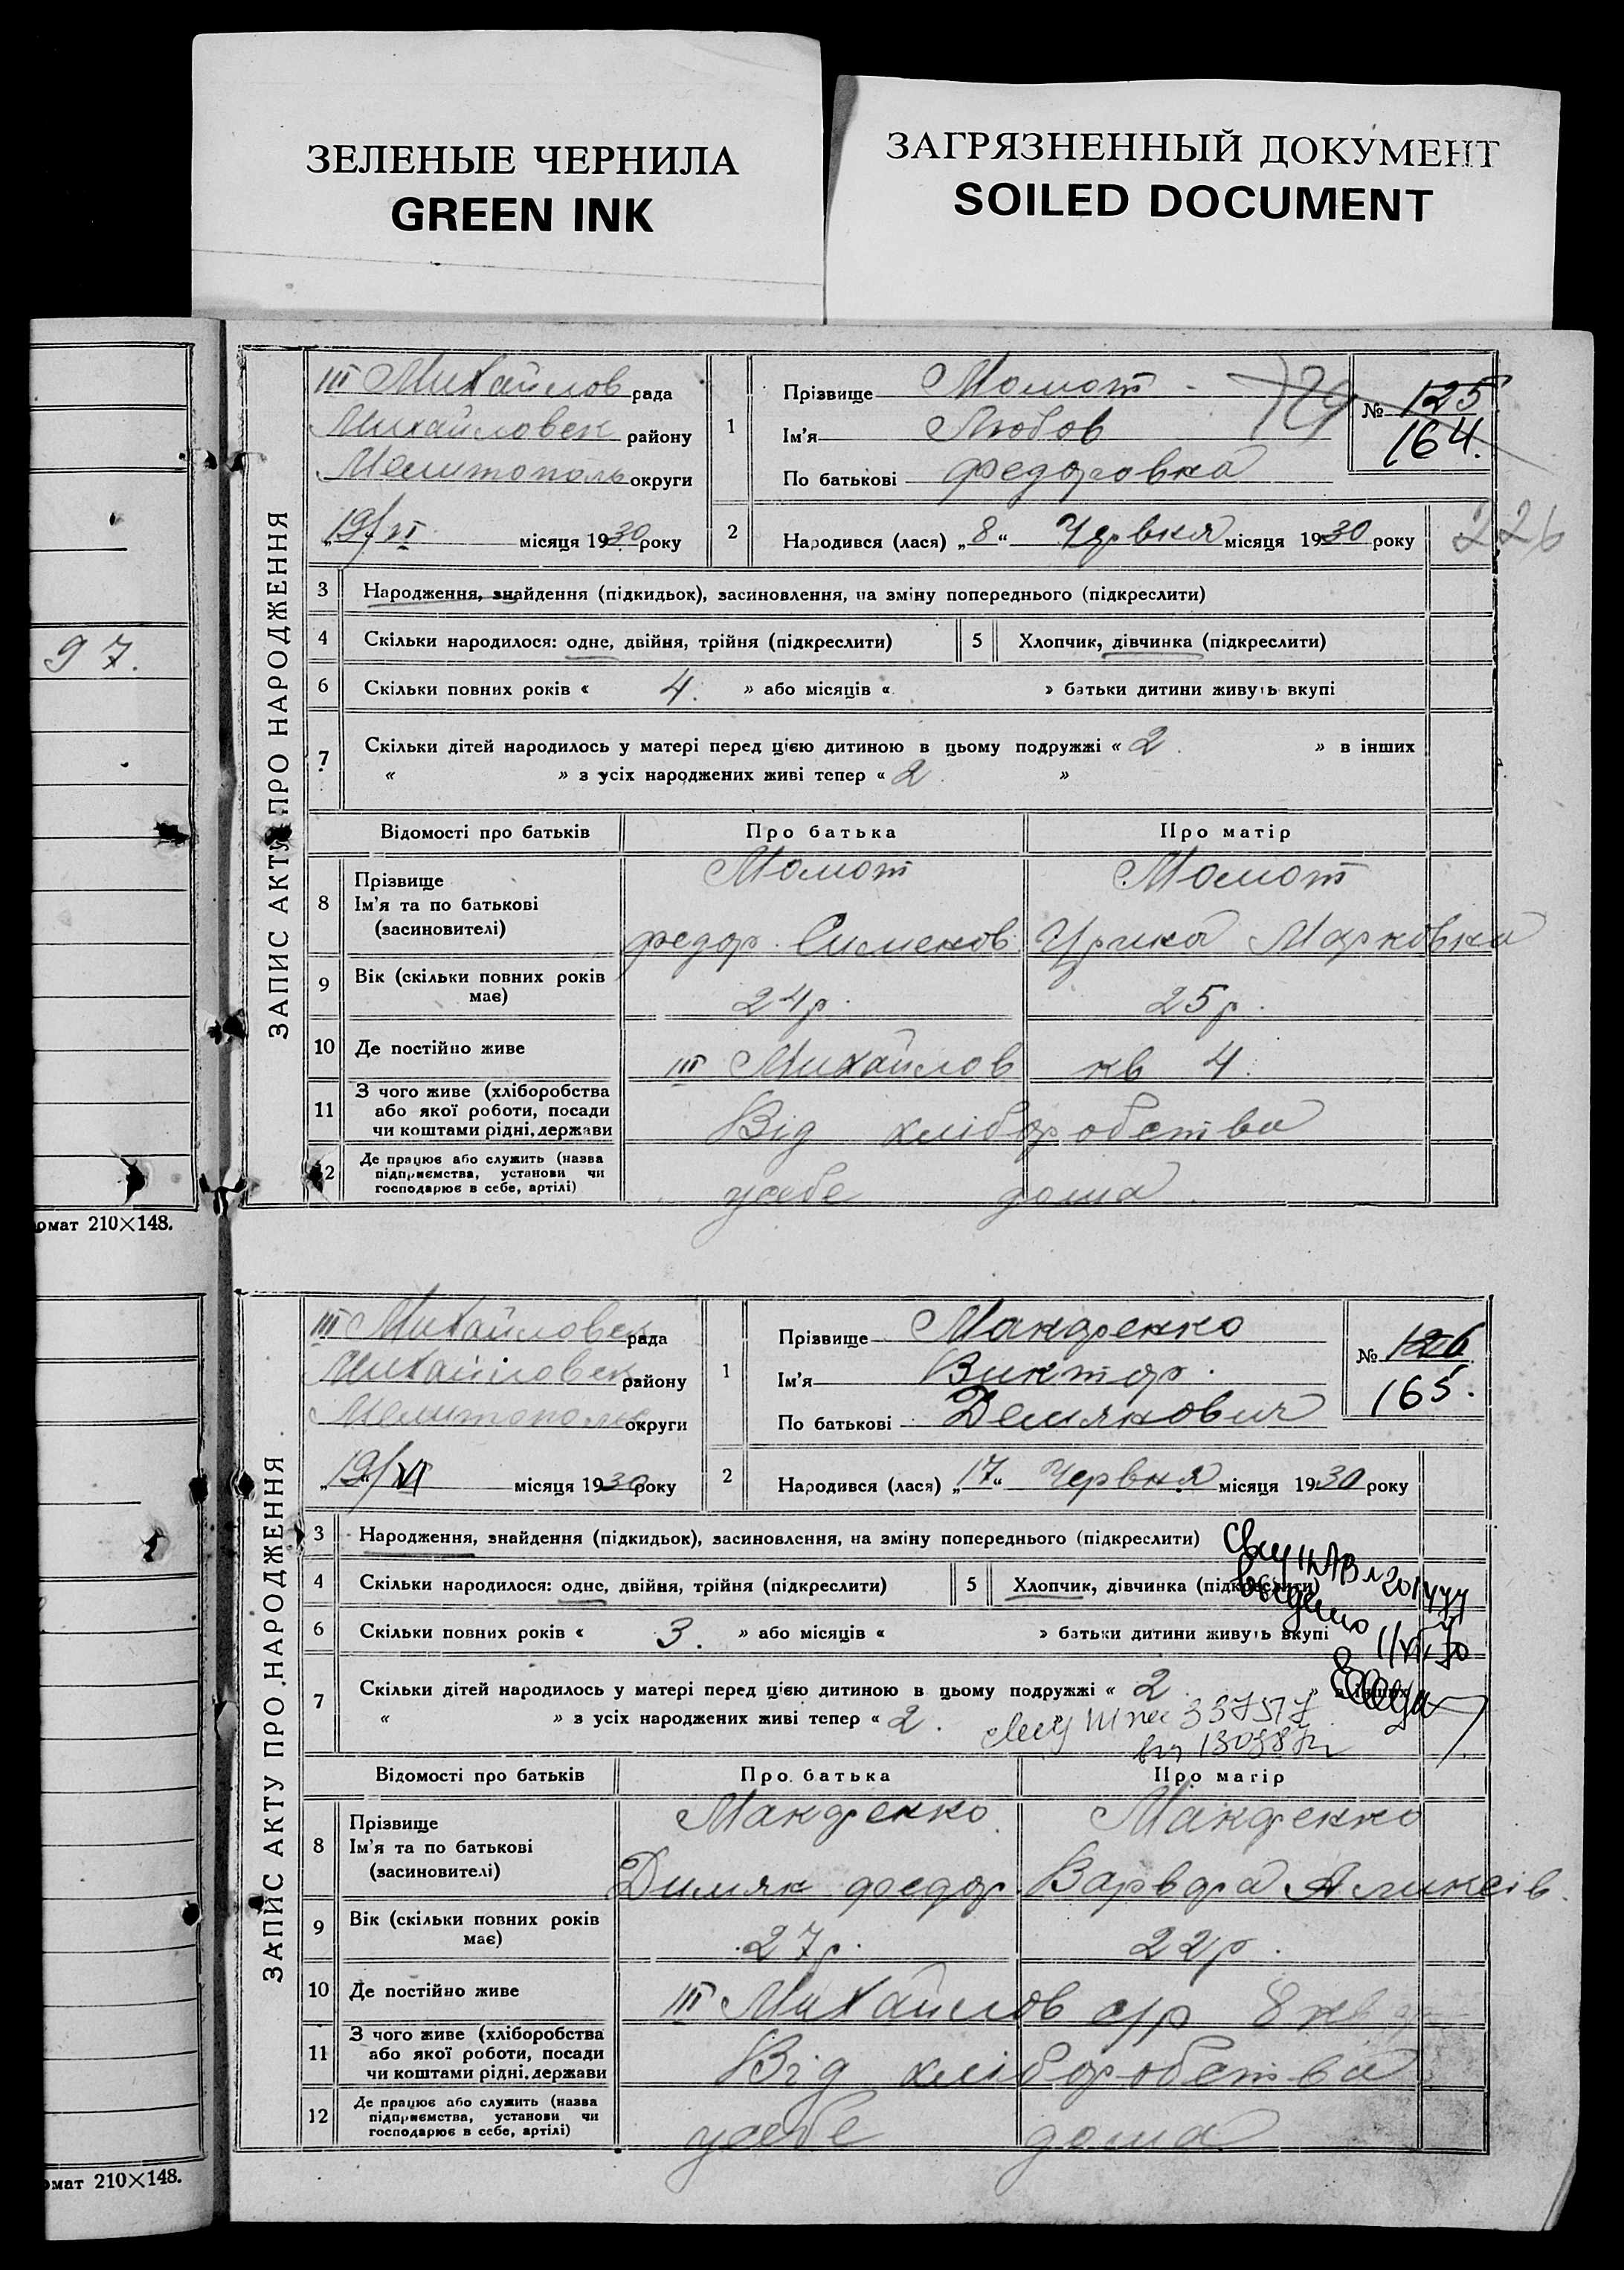 ЗЕЛЕНЫЕ ЧЕРНИЛА
GREEN INK
ЗАГРЯЗНЕННЫЙ ДОКУМЕНТ
SOILED DOCUMENT
97.
омат 210×148.
омат 210×148.
ЗАПИС АКТУ ПРО НАРОДЖЕННЯ
III Михайлов рада
Михайловск району
Мелитополь округи
„19/VI місяця 1930 року
1
Прізвище Момот
Ім'я Любов
По батькові Федоровна
№ 125
164.
226
2 Народився (лася) „8“ Червня місяця 1930 року
3 Народження, знайдення (підкидьок), засиновлення, на зміну попереднього (підкреслити)
4 Скільки народилося: одне, двійня, трійня (підкреслити) 5 Хлопчик, дівчинка (підкреслити)
6 Скільки повних років « 4. » або місяців « » батьки дитини живуть вкупі
7 Скільки дітей народилось у матері перед цією дитиною в цьому подружжі « 2. » в інших
« » з усіх народжених живі тепер « 2. »
Відомості про батьків Про батька Про матір
8 Прізвище
Ім'я та по батькові
(засиновителі)
Момот Момот
Федор Сименов Ирина Марковна
9 Вік (скільки повних років має) 24р. 25р.
10 Де постійно живе III Михайлов кв 4.
11 З чого живе (хліборобства
або якої роботи, посади
чи коштами рідні, держави
Від хліборобства
12 Де працює або служить (назва
підприємства, установи чи
господарює в себе, артілі)
усебе дома
ЗАПИС АКТУ ПРО НАРОДЖЕННЯ
III Михайловск рада
Михайловск району
Мелитополь округи
„19/VI місяця 1930 року
1
Прізвище Мандренко
Ім'я Виктор.
По батькові Демянович
№ 126
165.
2 Народився (лася) „17“ Червня місяця 1930 року
3 Народження, знайдення (підкидьок), засиновлення, на зміну попереднього (підкреслити)
4 Скільки народилося: одне, двійня, трійня (підкреслити) 5 Хлопчик, дівчинка (підкреслити)
6 Скільки повних років « 3. » або місяців « » батьки дитини живуть вкупі
7 Скільки дітей народилось у матері перед цією дитиною в цьому подружжі « 2 » в інших
« » з усіх народжених живі тепер « 2.
Відомості про батьків Про батька Про матір
8 Прізвище
Ім'я та по батькові
(засиновителі)
Мандренко Мандренко
Димян Федор. Варвара Аликсів.
9 Вік (скільки повних років має) 27р. 22р.
10 Де постійно живе III Михайлов с/р 8 кв
11 З чого живе (хліборобства
або якої роботи, посади
чи коштами рідні, держави
Від хліборобства
12 Де працює або служить (назва
підприємства, установи чи
господарює в себе, артілі)
усебе дома